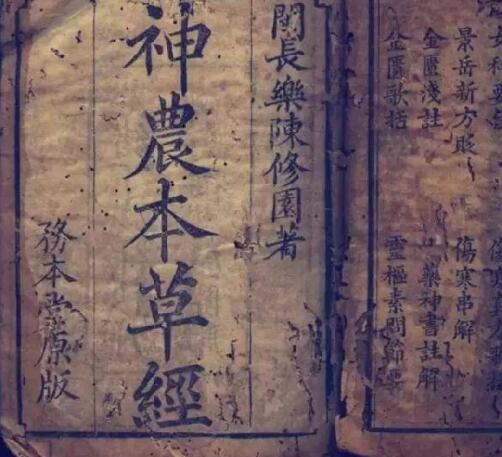 女科要
景岳新方貶 傷寒串解
金匱淺註 藥神書註解
金匱歌括 靈樞素問節要
閩長樂陳修園著
神農本草經
務本堂原版